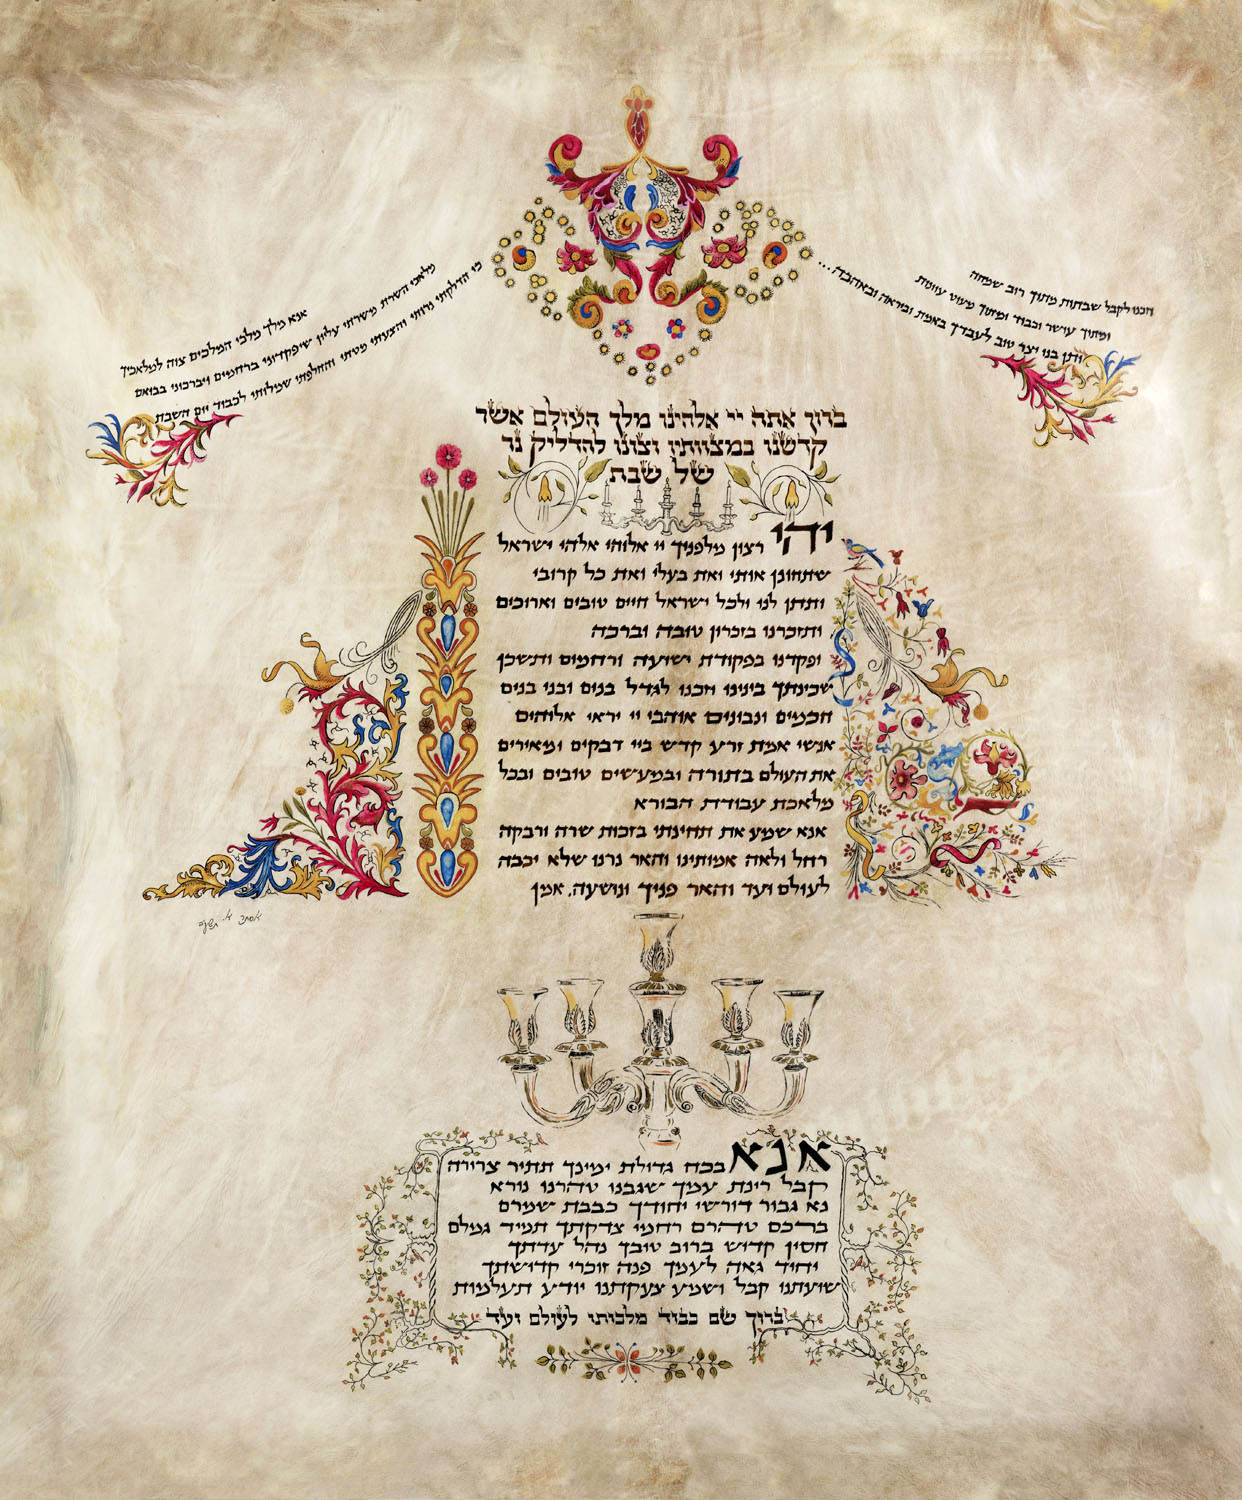 מלאכי השרת משרתי עליון שיפקדוני ברחמים ויברכוני בבואם
אנא מלך מלכי המלכים צוה למלאכיך
כי הדלקתי נרותי והצעתי מטתי והחלפתי שמלותי לכבוד יום השבת
וזכנו לקבל שבתות מתוך רוב שמחה
ומתוך עושר וכבוד ומתוך מעוט עוונות
ותן בנו יצר טוב לעבדך באמת וביראה ובאהבה...
ברוך אתה יי אלהינו מלך העולם אשר
קדשנו במצוותיו וצונו להדליק נר
של שבת
יהי רצון מלפניך יי אלוהי אלהי ישראל
שתחונן אותי ואת בעלי ואת כל קרובי
ותתן לנו ולכל ישראל חיים טובים וארוכים
ותזכרנו בזכרון טובה וברכה
ופקדנו בפקודת ישועה ורחמים ותשכן
שכינתך בינינו וזכנו לגדל בנים ובני בנים
חכמים ונבונים אוהבי יי יראי אלוהים
אנשי אמת זרע קדש ביי דבקים ומאירים
את העולם בתורה ובמעשים טובים ובכל
מלאכת עבודת הבורא
אנא שמע את תחינתי בזכות שרה ורבקה
רחל ולאה אמותינו והאר נרנו שלא יכבה
לעולם ועד והאר פניך ונושעה. אמן
אנא בכח גדולת ימינך תתיר צרורה
קבל רינת עמך שגבנו טהרנו נורא
נא גבור דורשי יחודך כבבת שמרם
ברכם טהרם רחמי צדקתך תמיד גמלם
חסין קדיש ברוב טובך נהל עדתך
יחיד גאה לעמך פנה זוכרי קדישתך
שועתנו קבל ושמע צעקתנו יודע תעלמות
ברוך שם כבוד מלכותי לעולם ועד